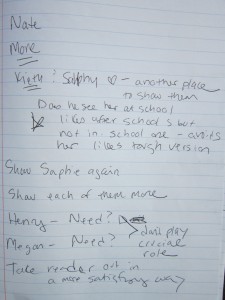 Nate
More
Kieru? Sophy ♡ - another place
to show them
Does he see her at school
likes after school s but
not in school one - avoids
her likes tough version
Show Sophie again
Show each of them more
Henry - Need?
Megan - Need? > don't play
crucial
role
Take reader out in
a more satisfying way